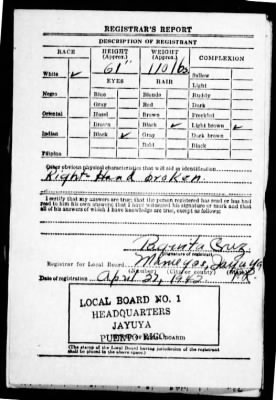 REGISTRAR'S REPORT
DESCRIPTION OF REGISTRANT
RACE HEIGHT (Approx.) WEIGHT (Approx.) COMPLEXION
61" 110 lbs
White ✓ Sallow
EYES HAIR Light
Negro Blue Blonde Ruddy
Gray Red Dark
Oriental Hazel Brown Freckled
Brown Black ✓ Light brown ✓
Indian Black ✓ Gray Dark brown
Bald Black
Filipino
Other obvious physical characteristics that will aid in identification
Right Hand broken.
I certify that my answers are true; that the person registered has read or has had
read to him his own answers; that I have witnessed his signature or mark and that
all of his answers of which I have knowledge are true, except as follows:
Cruz
(Signature of registrar)
Registrar for Local Board Jayuya
(Number) (City or county) (State)
Date of registration April 27, 1942
LOCAL BOARD NO. 1
HEADQUARTERS
JAYUYA
PUERTO RICO
(The stamp of the Local Board having jurisdiction of the registrant
shall be placed in the above space.)